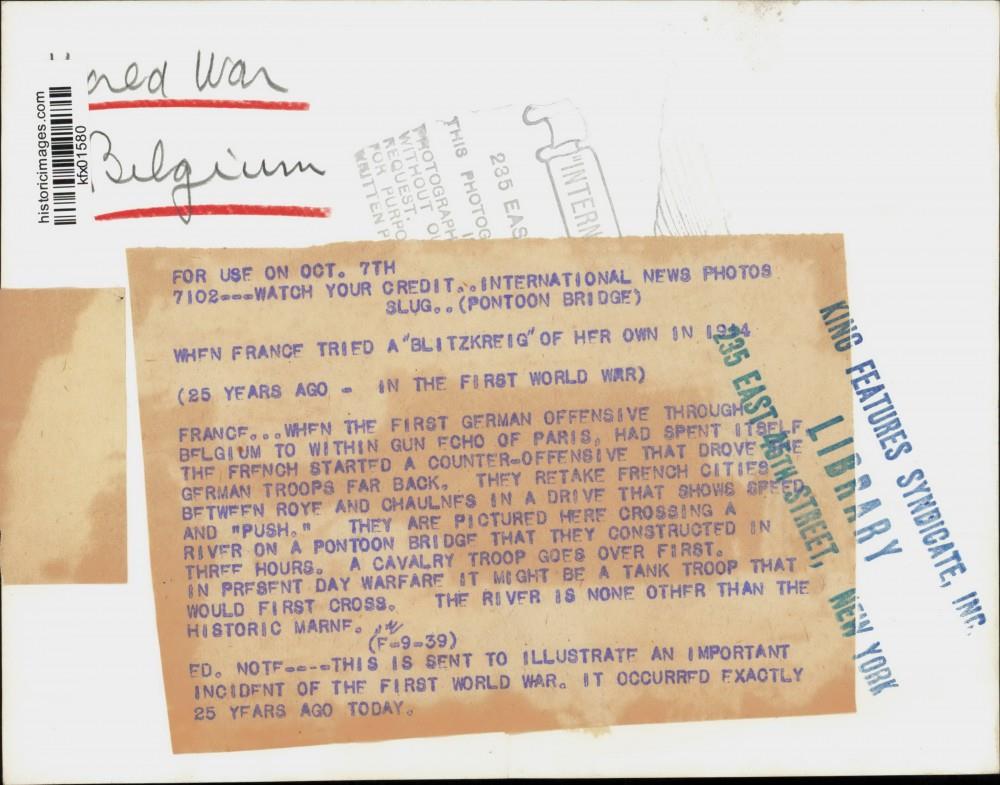 War
Belgium
historicimages.com
kfx01580
THIS PHOTOG
PHOTOGRAPH
WITHOUT
REQUEST.
FOR PURPO
WRITTEN P
235 EAS
"INTERN
FOR USE ON OCT. 7TH
7102---WATCH YOUR CREDIT...INTERNATIONAL NEWS PHOTOS
SLUG..(PONTOON BRIDGE)
WHEN FRANCE TRIED A "BLITZKREIG" OF HER OWN IN 1914
(25 YEARS AGO - IN THE FIRST WORLD WAR)
FRANCE...WHEN THE FIRST GERMAN OFFENSIVE THROUGH
BELGIUM TO WITHIN GUN ECHO OF PARIS, HAD SPENT ITSELF,
THE FRENCH STARTED A COUNTER-OFFENSIVE THAT DROVE THE
GERMAN TROOPS FAR BACK. THEY RETAKE FRENCH CITIES
BETWEEN ROYE AND CHAULNES IN A DRIVE THAT SHOWS SPEED
AND "PUSH." THEY ARE PICTURED HERE CROSSING A
RIVER ON A PONTOON BRIDGE THAT THEY CONSTRUCTED IN
THREE HOURS. A CAVALRY TROOP GOES OVER FIRST.
IN PRESENT DAY WARFARE IT MIGHT BE A TANK TROOP THAT
WOULD FIRST CROSS. THE RIVER IS NONE OTHER THAN THE
HISTORIC MARNE.
(F-9-39)
ED. NOTE----THIS IS SENT TO ILLUSTRATE AN IMPORTANT
INCIDENT OF THE FIRST WORLD WAR. IT OCCURRED EXACTLY
25 YEARS AGO TODAY.
KING FEATURES SYNDICATE, INC.
LIBRARY
235 EAST 45TH STREET, NEW YORK